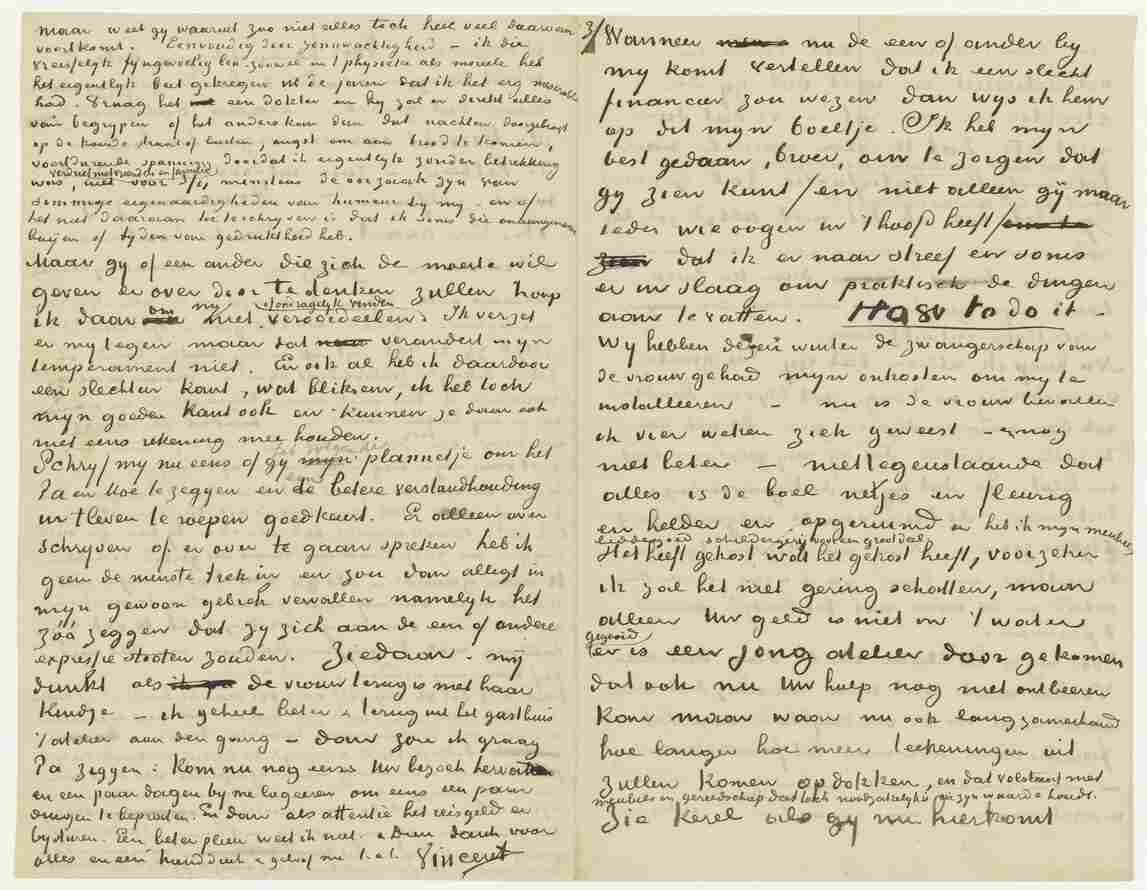 maar weet gij waaruit zoo niet alles toch heel veel daarvan
voortkomt. Eenvoudig door zenuwachtigheid – ik die
vreesselijk fijngevoelig ben zoowel in 't physieke als morele heb
het eigentlijk beet gekregen uit de jaren dat ik het erg miserabel
had. Vraag het een dokter en hij zal er direkt alles
van begrijpen of het anders kon dan dat nachten doorgebragt
op de koude straat of buiten, angst om aan brood te komen,
voortdurende spanning doordat ik eigentlijk zonder betrekking
verdriet met vrienden en familie
was, voor 3/4 minstens de oorzaak zijn van
sommige eigenaardigheden van humeur bij mij – en of
het niet daaraan toe te schrijven is dat ik soms die onaangename
buijen of tijden van gedruktheid heb.
Maar gij of een ander die zich de moeite wil
geven er over door te denken zullen hoop
mij of onvragelijk vinden
ik daar om niet veroordeelen. Ik verzet
er mij tegen maar dat verandert mijn
temperament niet. En ook al heb ik daardoor
een slechten kant, wat bliksem, ik heb toch
mijn goeden kant ook en kunnen ze daar ook
niet eens rekening mee houden.
Schrijf mij nu eens of gij plannetje om het
Pa en Moe te zeggen en eens de betere verstandhouding
in 't leven te roepen goedkeurt. Er alleen over
schrijven of er over te gaan spreken heb ik
geen de minste trek in en zou dan allegt in
mijn gewoon gebrek vervallen namelijk het
zóó zeggen dat zij zich aan de een of andere
expressie stooten zouden. Ziedaar – mij
dunkt als de vrouw terug is met haar
kindje – ik geheel beter & terug uit het gasthuis
't atelier aan den gang – dan zou ik graag
Pa zeggen: kom nu nog eens Uw bezoek hervatten
en een paar dagen bij me logeeren om eens een paar
dingen te bepraten. En dan als attentie het reisgeld er
bij sturen. Een beter plan weet ik niet. & Dien dank voor
alles en een handdruk & geloof me t.à.t. Vincent
3/ Wanneer nu de een of ander bij
mij komt vertellen dat ik een slecht
financier zou wezen dan wijs ik hem
op dit mijn boeltje. Ik heb mijn
best gedaan, broer, om te zorgen dat
gij zien kunt /en niet alleen gij maar
ieder wie oogen in 't hoofd heeft/
dat ik er naar streef en soms
er in slaag om praktisch de dingen
aan te vatten. How to do it –
Wij hebben dezen winter de zwangerschap van
de vrouw gehad mijn onkosten om mij te
installeeren – nu is de vrouw bevallen
ik vier weken ziek geweest – & nog
niet beter – niettegenstaande dat
alles is de boel netjes en fleurig
en helder en opgeruimd en heb ik mijn meubels
beddegoed, schildergerij voor een groot deel.
Het heeft gekost wat het gekost heeft, voorzeker
ik zal het niet gering schatten, maar
alleen Uw geld is niet in 't water
gegooid
er is een jong atelier door gekomen
dat ook nu Uw hulp nog niet ontbeeren
kan maar waar nu ook langzamerhand
hoe langer hoe meer teekeningen uit
zullen komen opdokken, en dat volstaat met
meubels en gereedschap dat toch noodzakelijk is zijn waarde houdt.
Zie Kerel als gij nu hierkomt